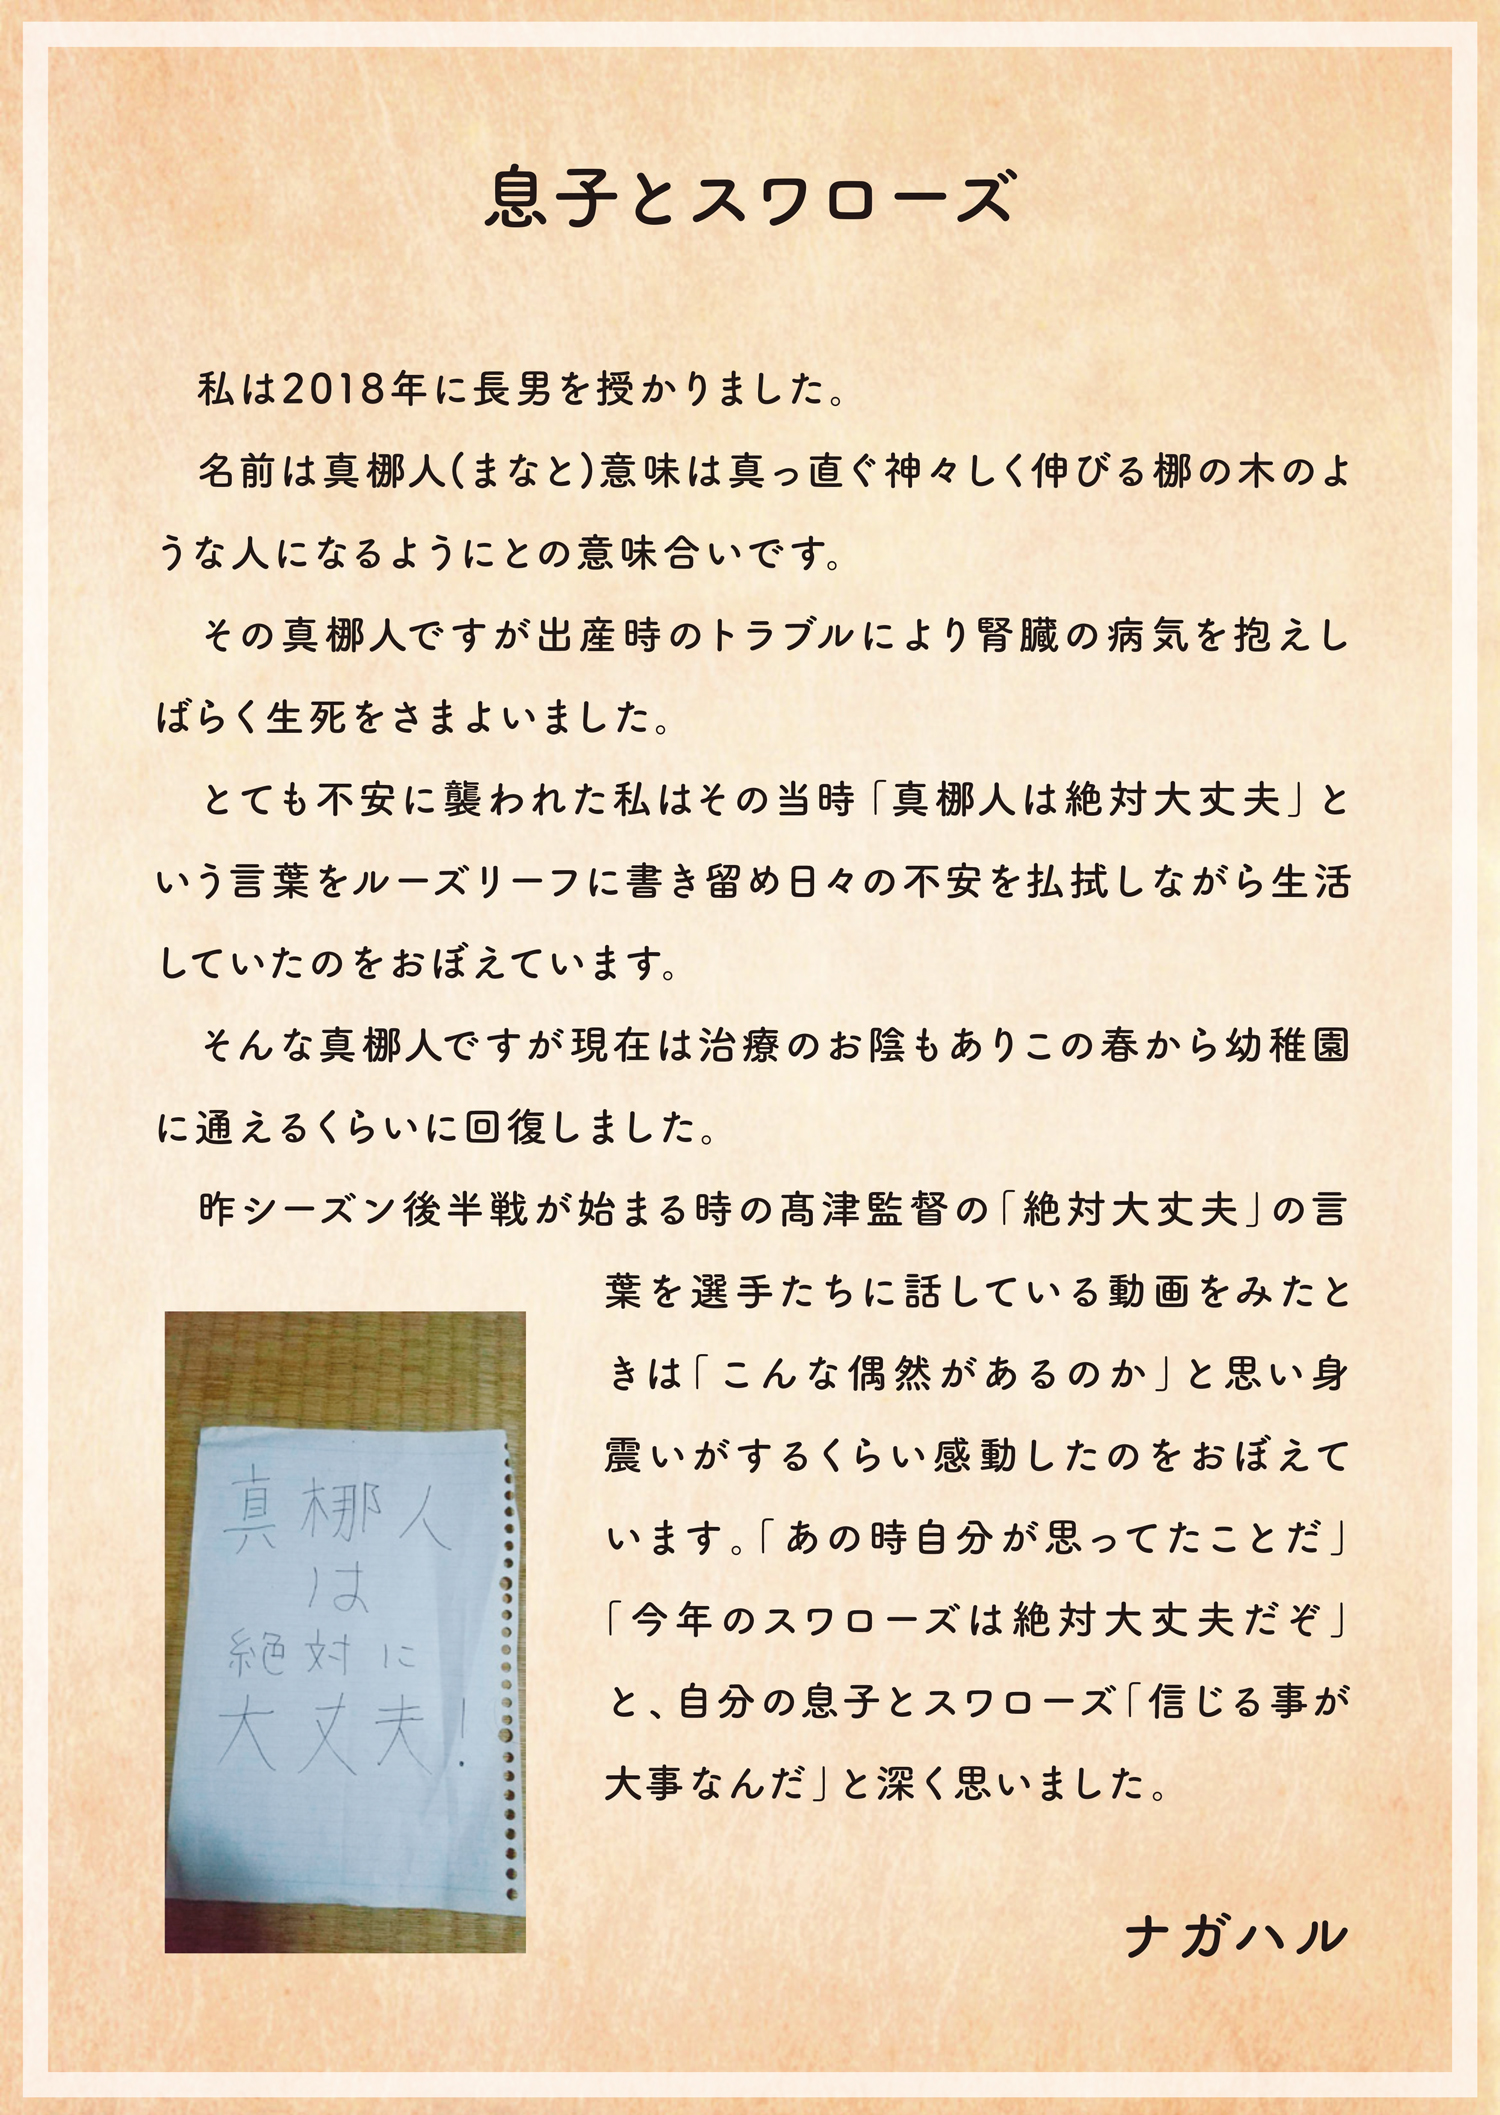 息子とスワローズ
私は2018年に長男を授かりました。
名前は真梛人(まなと)意味は真っ直ぐ神々しく伸びる梛の木のよ
うな人になるようにとの意味合いです。
その真梛人ですが出産時のトラブルにより腎臓の病気を抱えし
ばらく生死をさまよいました。
とても不安に襲われた私はその当時「真梛人は絶対大丈夫」と
いう言葉をルーズリーフに書き留め日々の不安を払拭しながら生活
していたのをおぼえています。
そんな真梛人ですが現在は治療のお陰もありこの春から幼稚園
に通えるくらいに回復しました。
昨シーズン後半戦が始まる時の髙津監督の「絶対大丈夫」の言
葉を選手たちに話している動画をみたと
きは「こんな偶然があるのか」と思い身
震いがするくらい感動したのをおぼえて
います。「あの時自分が思ってたことだ」
「今年のスワローズは絶対大丈夫だぞ」
と、自分の息子とスワローズ「信じる事が
大事なんだ」と深く思いました。
真梛人
は
絶対に
大丈夫!
ナガハル